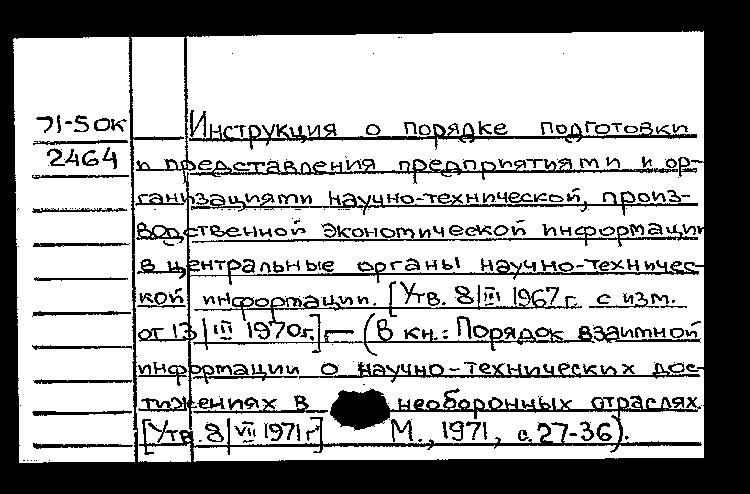 71-5 ОК Инструкция о порядке подготовки
2464 и представления предприятиями и ор-
ганизациями научно-технической, произ-
водственной экономической информации
в центральные органы научно-техничес-
кой информации. [Утв. 8/III 1967 г. с изм.
от 13/III 1970г.] — (В кн.: Порядок взаимной
информации о научно-технических дос-
тижениях в необоронных отраслях
[Утв. 8/VII 1971 г] М., 1971, с. 27-36).